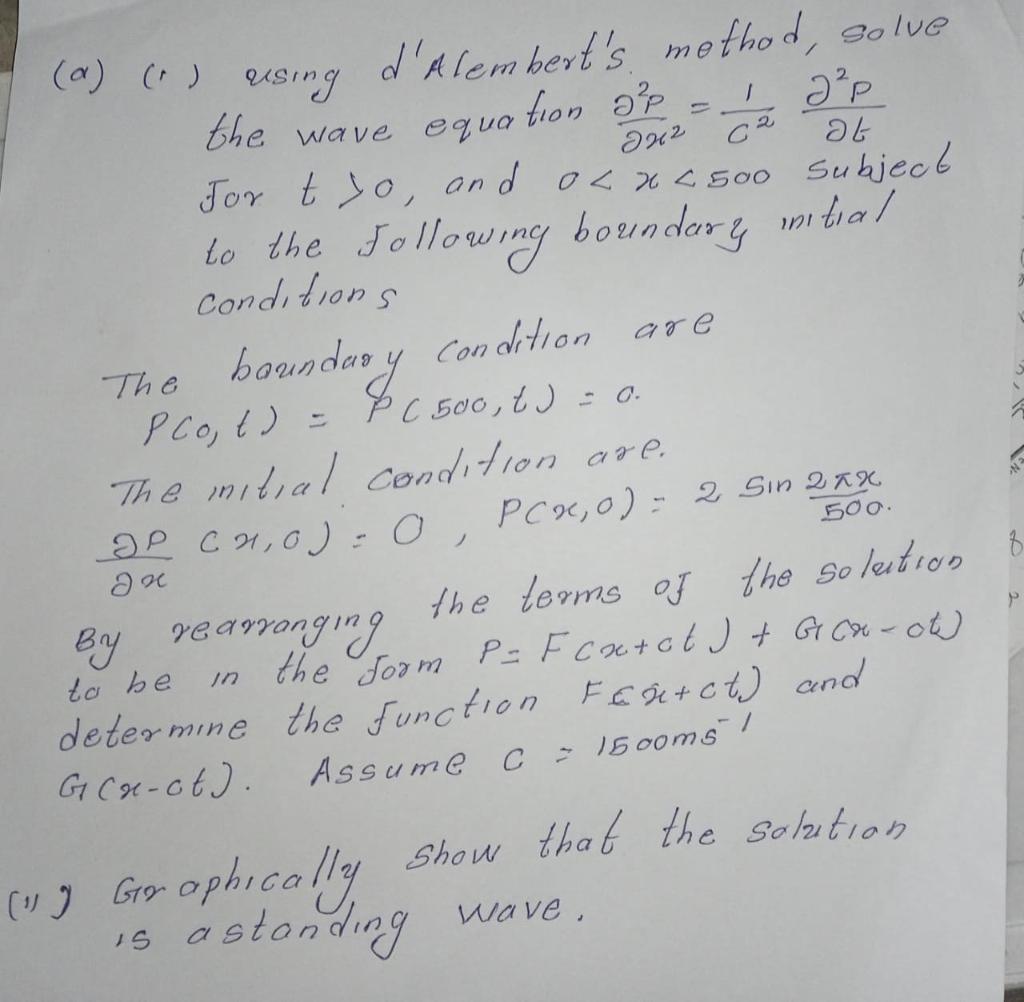 (a) (i) using d'Alembert's method, solve
the wave equation ∂²P/∂x² = 1/c² ∂²P/∂t
for t >0, and 0 < x < 500 subject
to the following boundary initial
conditions
The boundary condition are
P(0, t) = P(500, t) = 0.
The initial condition are.
∂P/∂x (x, 0) = 0 , P(x, 0) = 2 Sin 2πx/500.
By rearranging the terms of the solution
to be in the form P = F(x+ct) + G(x-ct)
determine the function F(x+ct) and
G(x-ct). Assume c = 1500ms⁻¹
(ii) Graphically show that the solution
is a standing wave.